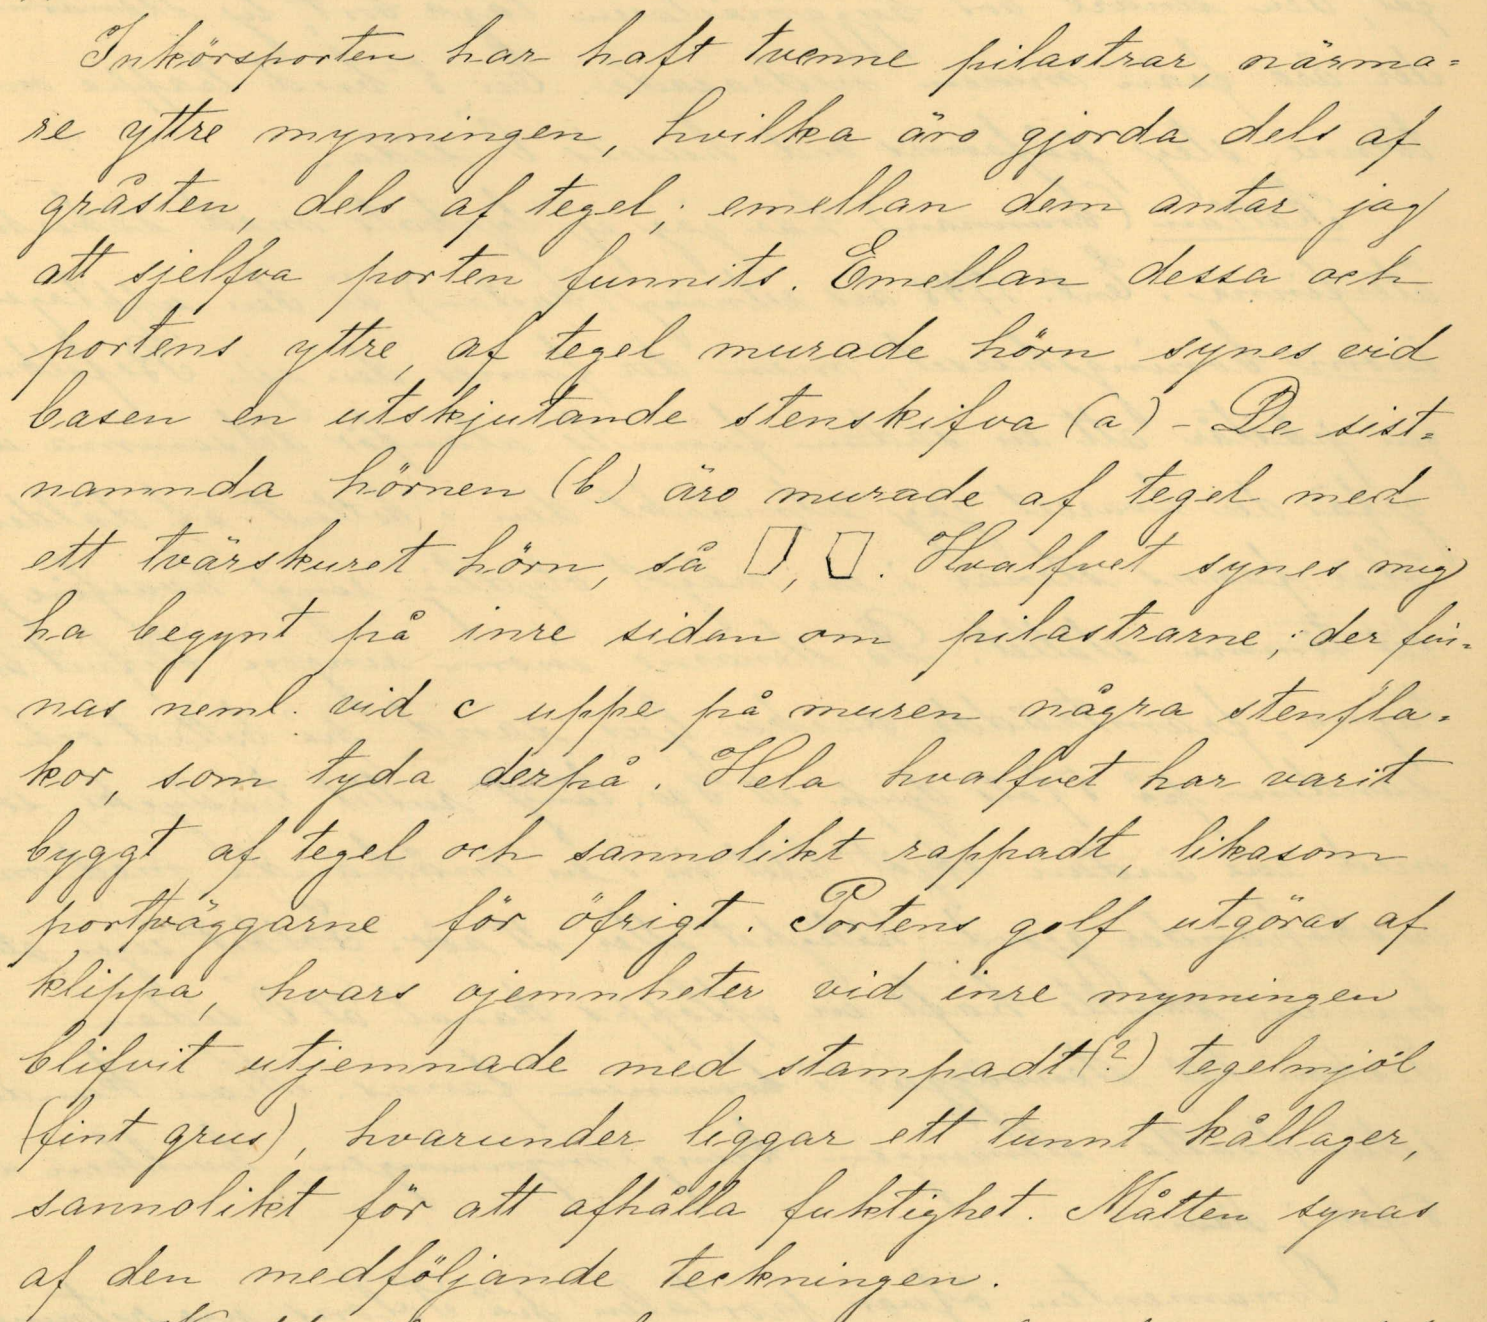 Inkörsporten har haft tvenne pilastrar, närma-
re yttre mynningen, hvilka äro gjorda dels af
gråsten, dels af tegel; emellan dem antar jag
att sjelfva porten funnits. Emellan dessa och
portens yttre, af tegel murade hörn synes vid
basen en utskjutande stenskifva (a) - De sist-
namnda hörnen (b) äro murade af tegel med
ett tvärskuret hörn, så , . Hvalfvet synes mig
ha begynt på inre sidan om pilastrarne; der fin-
nas neml. vid c uppe på muren några stenfla-
kor, som tyda derpå. Hela hvalfvet har varit
byggt af tegel och sannolikt rappadt, likasom
portväggarne för öfrigt. Portens golf utgöras af
klippa, hvars ojemnheter vid inre mynningen
blifvit utjemnade med stampadt(?) tegelmjöl
(fint grus), hvarunder liggar ett tunnt kållager,
sannolikt för att afhålla fuktighet. Måtten synas
af den medföljande teckningen.